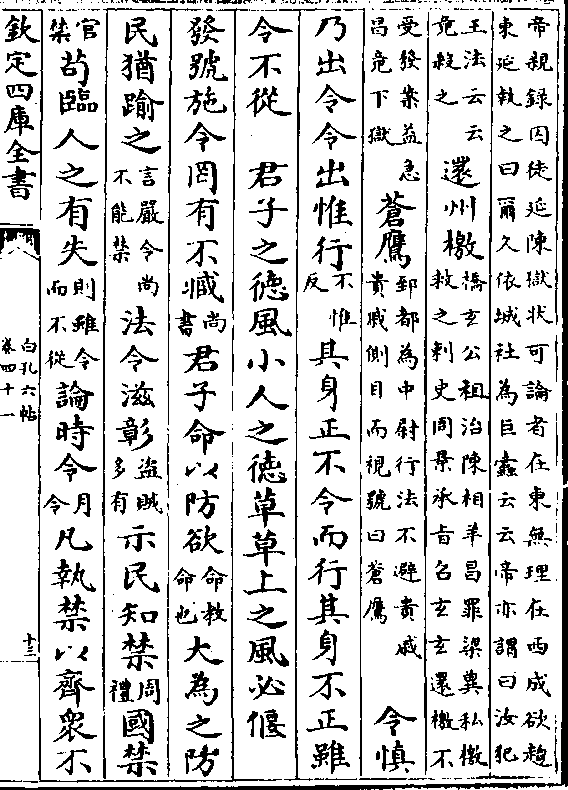 帝親錄囚徒延陳獄狀可論者在東無理在西成欲趨
東延執之曰爾久依城社為巨蠹云云帝亦謂曰汝犯
王法云云
竟救之
還州檄
橋玄公祖治陳相羊昌罪梁冀私檄
救之刺史周景承旨召玄玄還檄不
受發案益急
昌竟下獄
蒼鷹
郅都為中尉行法不避貴戚
貴戚側目而視號曰蒼鷹
令慎
乃出令令出惟行
不惟
反
其身正不令而行其身不正雖
令不從　君子之德風小人之德草草上之風必偃
發號施令罔有不臧
尚
書
君子命以防欲
命教
命也
大為之防
民猶踰之
言嚴令尚
不能禁
法令滋彰
盜賊
多有
示民知禁
周
禮
國禁
官
禁
苟臨人之有失
則雖令
而不從
論時令
月
令
凡執禁以齊眾不
欽定四庫全書
白孔六帖
卷四十一
十三